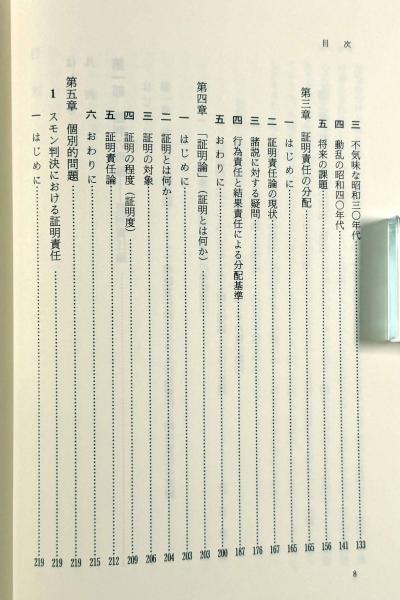 目次
三 不気味な昭和三〇年代 133
四 動乱の昭和四〇年代 141
五 将来の課題 156
第三章 証明責任の分配 165
一 はじめに 165
二 証明責任論の現状 167
三 諸説に対する疑問 176
四 行為責任と結果責任による分配基準 187
五 おわりに 200
第四章 「証明論」（証明とは何か） 203
一 はじめに 203
二 証明とは何か 204
三 証明の対象 206
四 証明の程度（証明度） 209
五 証明責任論 212
六 おわりに 215
第五章 個別的問題 219
1 スモン判決における証明責任 219
一 はじめに 219
8